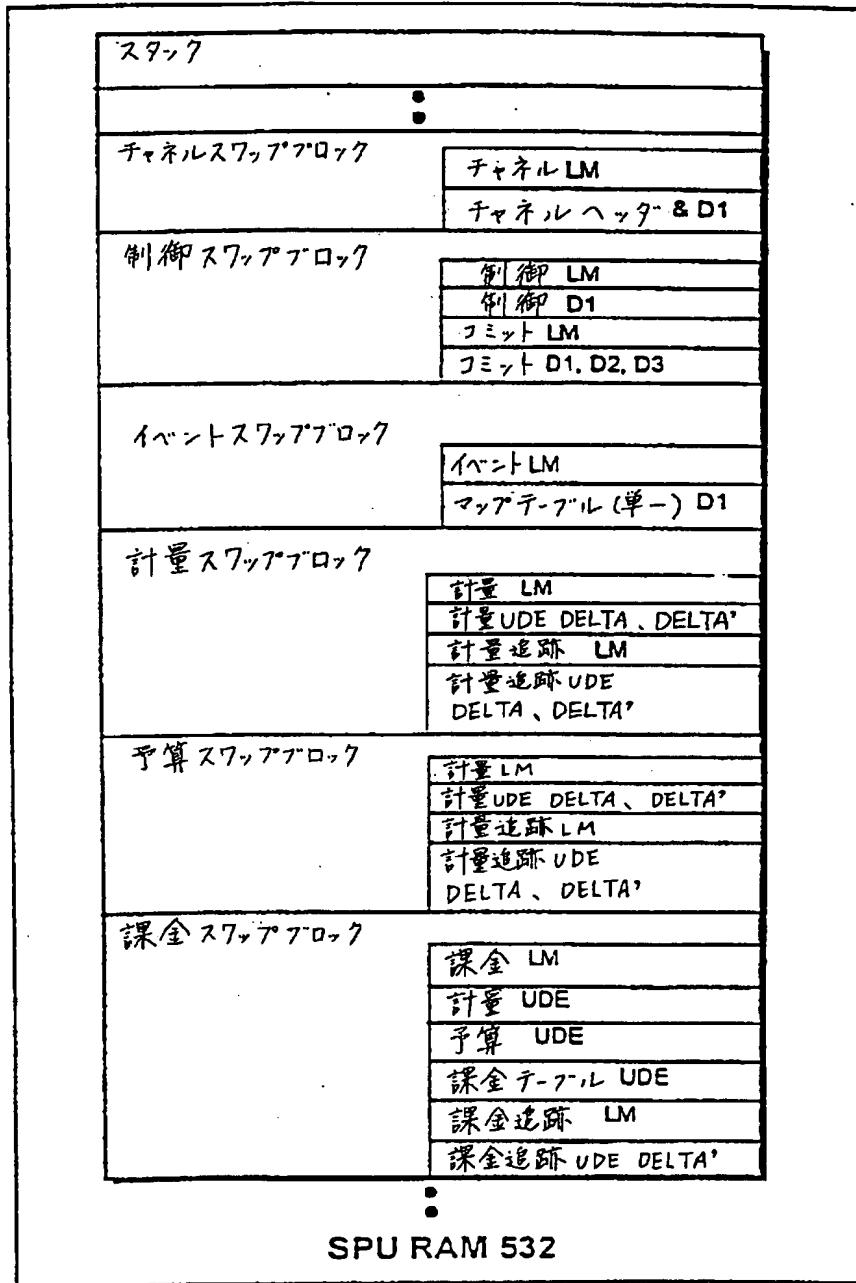 スタック
チャネルスワップブロック
チャネル LM
チャネル ヘッダ & D1
制御スワップブロック
制御 LM
制御 D1
コミット LM
コミット D1, D2, D3
イベントスワップブロック
イベント LM
マップテーブル (単一) D1
計量スワップブロック
計量 LM
計量UDE DELTA、DELTA'
計量追跡 LM
計量追跡UDE
DELTA、DELTA'
予算スワップブロック
計量LM
計量UDE DELTA、DELTA'
計量追跡LM
計量追跡UDE
DELTA、DELTA'
課金スワップブロック
課金 LM
計量 UDE
予算 UDE
課金テーブル UDE
課金追跡 LM
課金追跡 UDE DELTA'
SPU RAM 532